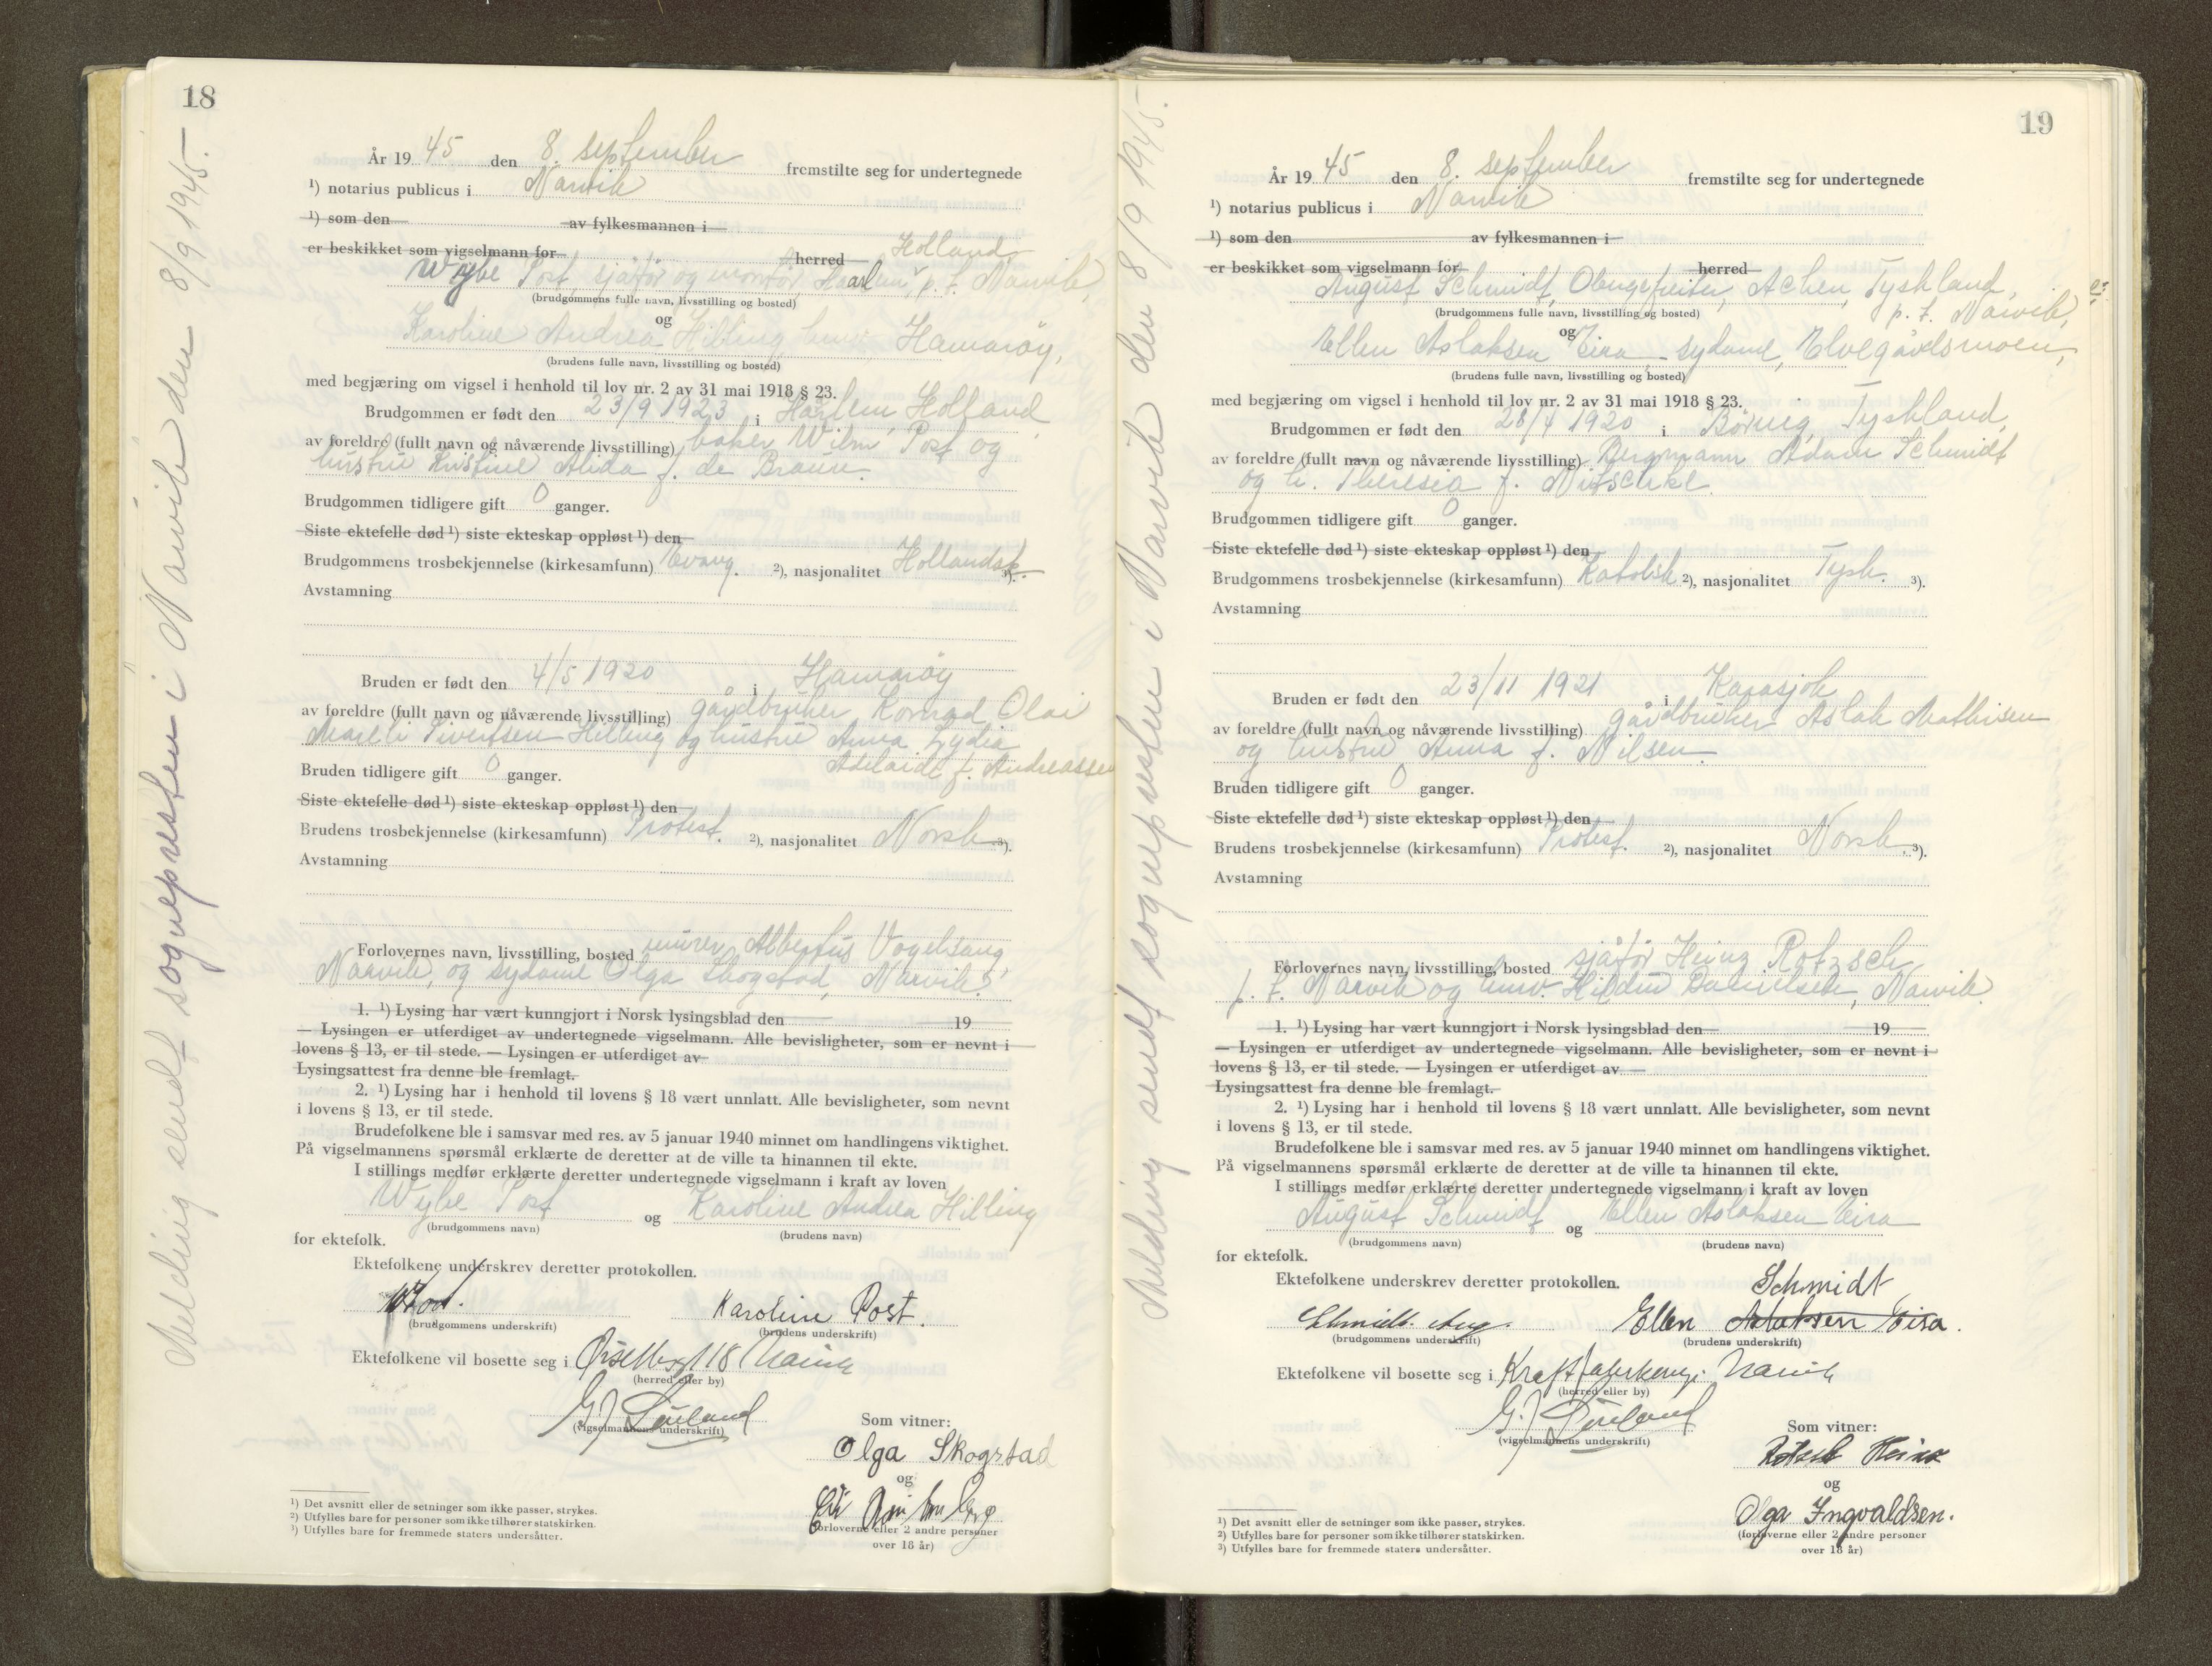 18
År 19 45 den 8. september fremstilte seg for undertegnede
¹) notarius publicus i Narvik
¹) som den av fylkesmannen i
er beskikket som vigselmann for herred Holland
Wybe Post, sjåfør og montør, Haarlem, p. t. Narvik,
(brudgommens fulle navn, livsstilling og bosted)
og
Karoline Andrea Hilling, Hamarøy,
(brudens fulle navn, livsstilling og bosted)
med begjæring om vigsel i henhold til lov nr. 2 av 31 mai 1918 § 23.
Brudgommen er født den 23/9 1923 i Haarlem, Holland,
av foreldre (fullt navn og nåværende livsstilling) baker Wilm Post og
hustru Kristine Alida f. de Braun.
Brudgommen tidligere gift 0 ganger.
Siste ektefelle død ¹) siste ekteskap oppløst ¹) den
Brudgommens trosbekjennelse (kirkesamfunn) Evang. ²), nasjonalitet Hollandsk. ³).
Avstamning
Bruden er født den 4/5 1920 i Hamarøy
av foreldre (fullt navn og nåværende livsstilling) gårdbruker Konrad Olai
Mareli Sivertsen Hilling og hustru Anna Lydia
Adelaide f. Andreassen
Bruden tidligere gift 0 ganger.
Siste ektefelle død ¹) siste ekteskap oppløst ¹) den
Brudens trosbekjennelse (kirkesamfunn) Protest. ²), nasjonalitet Norsk ³).
Avstamning
Forlovernes navn, livsstilling, bosted murer Albertus Vogelsang,
Narvik, og sydame Olga Skogstad, Narvik.
1. ¹) Lysing har vært kunngjort i Norsk lysingsblad den 19
— Lysingen er utferdiget av undertegnede vigselmann. Alle bevisligheter, som er nevnt i
lovens § 13, er til stede. — Lysingen er utferdiget av
Lysingsattest fra denne ble fremlagt.
2. ¹) Lysing har i henhold til lovens § 18 vært unnlatt. Alle bevisligheter, som nevnt
i lovens § 13, er til stede.
Brudefolkene ble i samsvar med res. av 5 januar 1940 minnet om handlingens viktighet.
På vigselmannens spørsmål erklærte de deretter at de ville ta hinannen til ekte.
I stillings medfør erklærte deretter undertegnede vigselmann i kraft av loven
Wybe Post og Karoline Andrea Hilling
(brudgommens navn) (brudens navn)
for ektefolk.
Ektefolkene underskrev deretter protokollen.
W Post. Karoline Post.
(brudgommens underskrift) (brudens underskrift)
Ektefolkene vil bosette seg i 118 Narvik
(herred eller by)
(vigselmannens underskrift)
Som vitner:
Olga Skogstad
og
(forloverne eller 2 andre personer
over 18 år)
¹) Det avsnitt eller de setninger som ikke passer, strykes.
²) Utfylles bare for personer som ikke tilhører statskirken.
³) Utfylles bare for fremmede staters undersåtter.
Melding sendt sognepresten i Narvik den 8/9 1945.-
19
År 19 45 den 8. september fremstilte seg for undertegnede
¹) notarius publicus i Narvik
¹) som den av fylkesmannen i
er beskikket som vigselmann for herred
August Schmidt, Obergefreiter, Achen, Tyskland,
(brudgommens fulle navn, livsstilling og bosted) p. t. Narvik,
og
Ellen Aslaksen Eira, sydame, Elvegårdsmoen,
(brudens fulle navn, livsstilling og bosted)
med begjæring om vigsel i henhold til lov nr. 2 av 31 mai 1918 § 23.
Brudgommen er født den 28/4 1920 i Børnig, Tyskland,
av foreldre (fullt navn og nåværende livsstilling) Bergmann Adam Schmidt
og h. Theresia f. Nitschke.
Brudgommen tidligere gift 0 ganger.
Siste ektefelle død ¹) siste ekteskap oppløst ¹) den
Brudgommens trosbekjennelse (kirkesamfunn) Katolsk ²), nasjonalitet Tysk. ³).
Avstamning
Bruden er født den 23/11 1921 i Karasjok
av foreldre (fullt navn og nåværende livsstilling) gårdbruker Aslak Mathisen
og hustru Anna f. Nilsen.
Bruden tidligere gift 0 ganger.
Siste ektefelle død ¹) siste ekteskap oppløst ¹) den
Brudens trosbekjennelse (kirkesamfunn) Protest. ²), nasjonalitet Norsk ³).
Avstamning
Forlovernes navn, livsstilling, bosted sjåfør Heinz Rotzsch
p. t. Narvik og husv. Hildur Danielsen, Narvik.
1. ¹) Lysing har vært kunngjort i Norsk lysingsblad den 19
— Lysingen er utferdiget av undertegnede vigselmann. Alle bevisligheter, som er nevnt i
lovens § 13, er til stede. — Lysingen er utferdiget av
Lysingsattest fra denne ble fremlagt.
2. ¹) Lysing har i henhold til lovens § 18 vært unnlatt. Alle bevisligheter, som nevnt
i lovens § 13, er til stede.
Brudefolkene ble i samsvar med res. av 5 januar 1940 minnet om handlingens viktighet.
På vigselmannens spørsmål erklærte de deretter at de ville ta hinannen til ekte.
I stillings medfør erklærte deretter undertegnede vigselmann i kraft av loven
August Schmidt og Ellen Aslaksen Eira
(brudgommens navn) (brudens navn)
for ektefolk.
Ektefolkene underskrev deretter protokollen. Schmidt
Schmidt. Aug. Ellen Aslaksen Eira.
(brudgommens underskrift) (brudens underskrift)
Ektefolkene vil bosette seg i Narvik
(herred eller by)
(vigselmannens underskrift)
Som vitner:
Rotzsch Heinz
og
Olga Ingvaldsen.
(forloverne eller 2 andre personer
over 18 år)
¹) Det avsnitt eller de setninger som ikke passer, strykes.
²) Utfylles bare for personer som ikke tilhører statskirken.
³) Utfylles bare for fremmede staters undersåtter.
Melding sendt sognepresten i Narvik den 8/9 1945.-